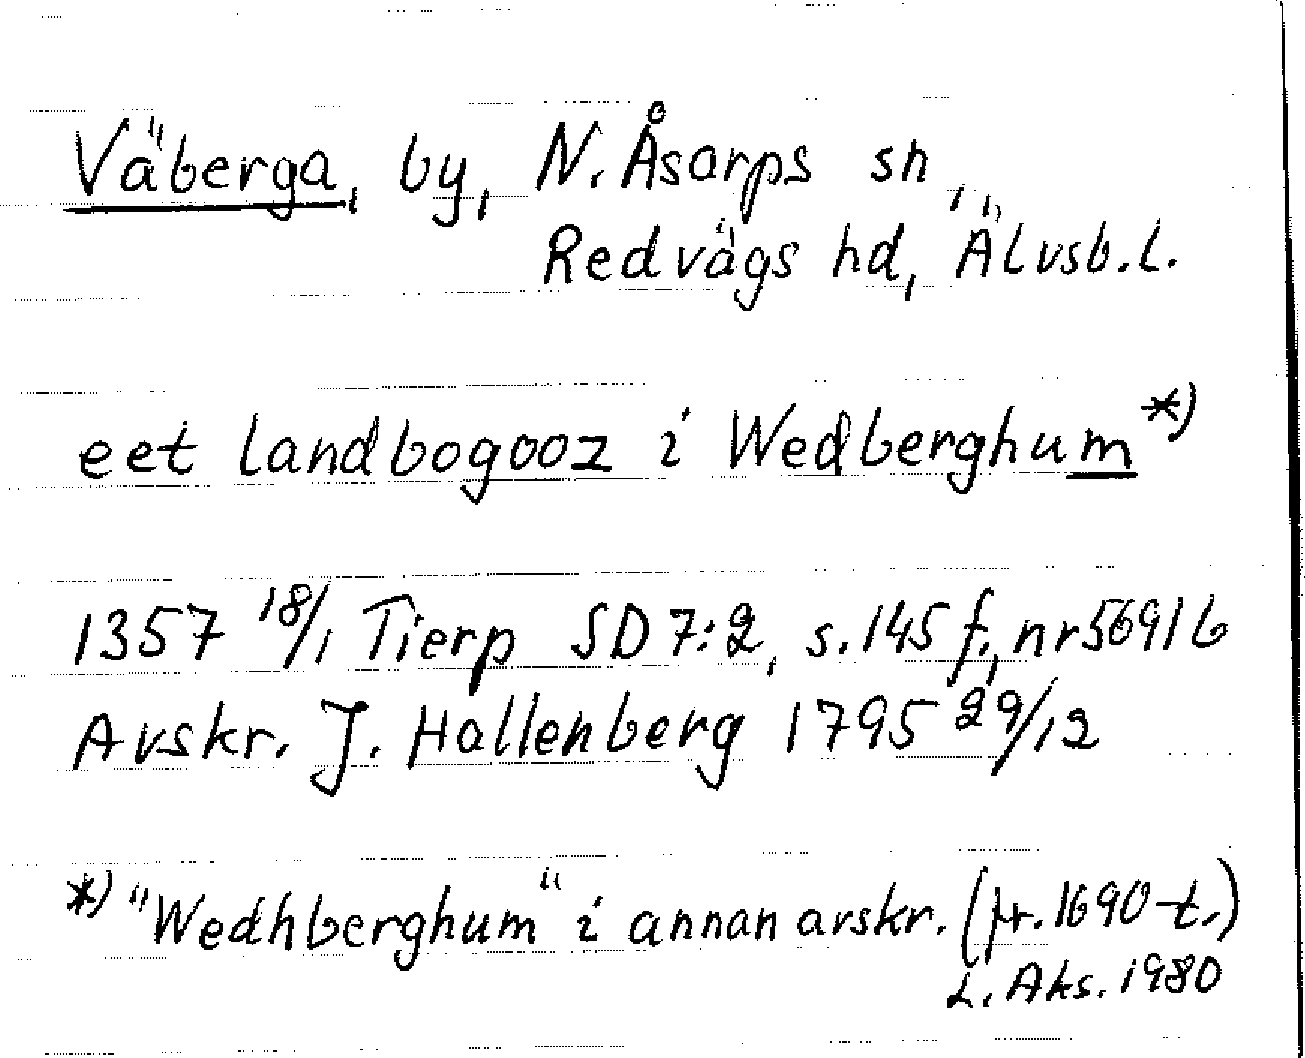 Väberga, by, N. Åsarps sn,
Redvägs hd, Älvsb.l.
eet landbogooz i Wedberghum *)
1357 18/1 Tierp SD 7:2, s. 145 f., nr 5691 b
Avskr. J. Hallenberg 1795 29/12
*) "Wedhberghum" i annan avskr. (fr. 1690-t.)
L. Aks. 1980